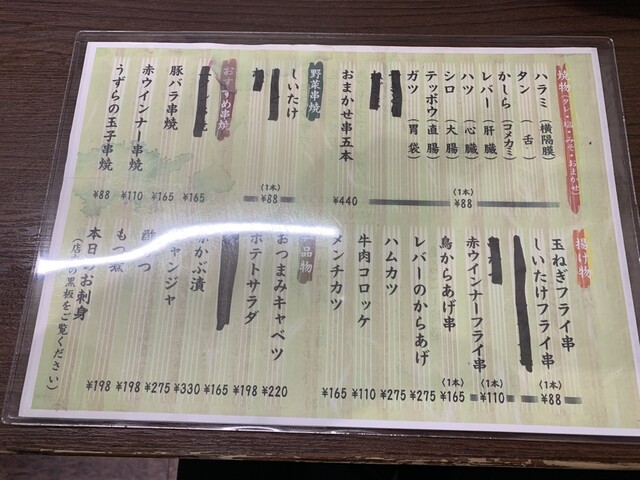 焼物(タレ・塩・みそ・おまかせ)
ハラミ(横隔膜)
タン(舌)
かしら(コメカミ)
レバー(肝臓)
ハツ(心臓)
シロ(大腸)
テッポウ(直腸)
ガツ(胃袋)
(1本)
¥88
おまかせ串五本
¥440
野菜串焼
しいたけ
(1本)
¥88
おすすめ串焼
¥165
豚バラ串焼
¥165
赤ウインナー串焼
¥110
うずらの玉子串焼
¥88
揚げ物
玉ねぎフライ串
しいたけフライ串
(1本)
¥88
赤ウインナーフライ串
(1本)
¥110
鳥からあげ串
(1本)
¥165
レバーのからあげ
¥275
ハムカツ
¥275
牛肉コロッケ
¥110
メンチカツ
¥165
品物
おつまみキャベツ
¥220
ポテトサラダ
¥198
¥165
かぶ漬
¥330
チャンジャ
¥275
¥198
もつ煮
¥198
本日のお刺身
(店内の黒板をご覧ください)